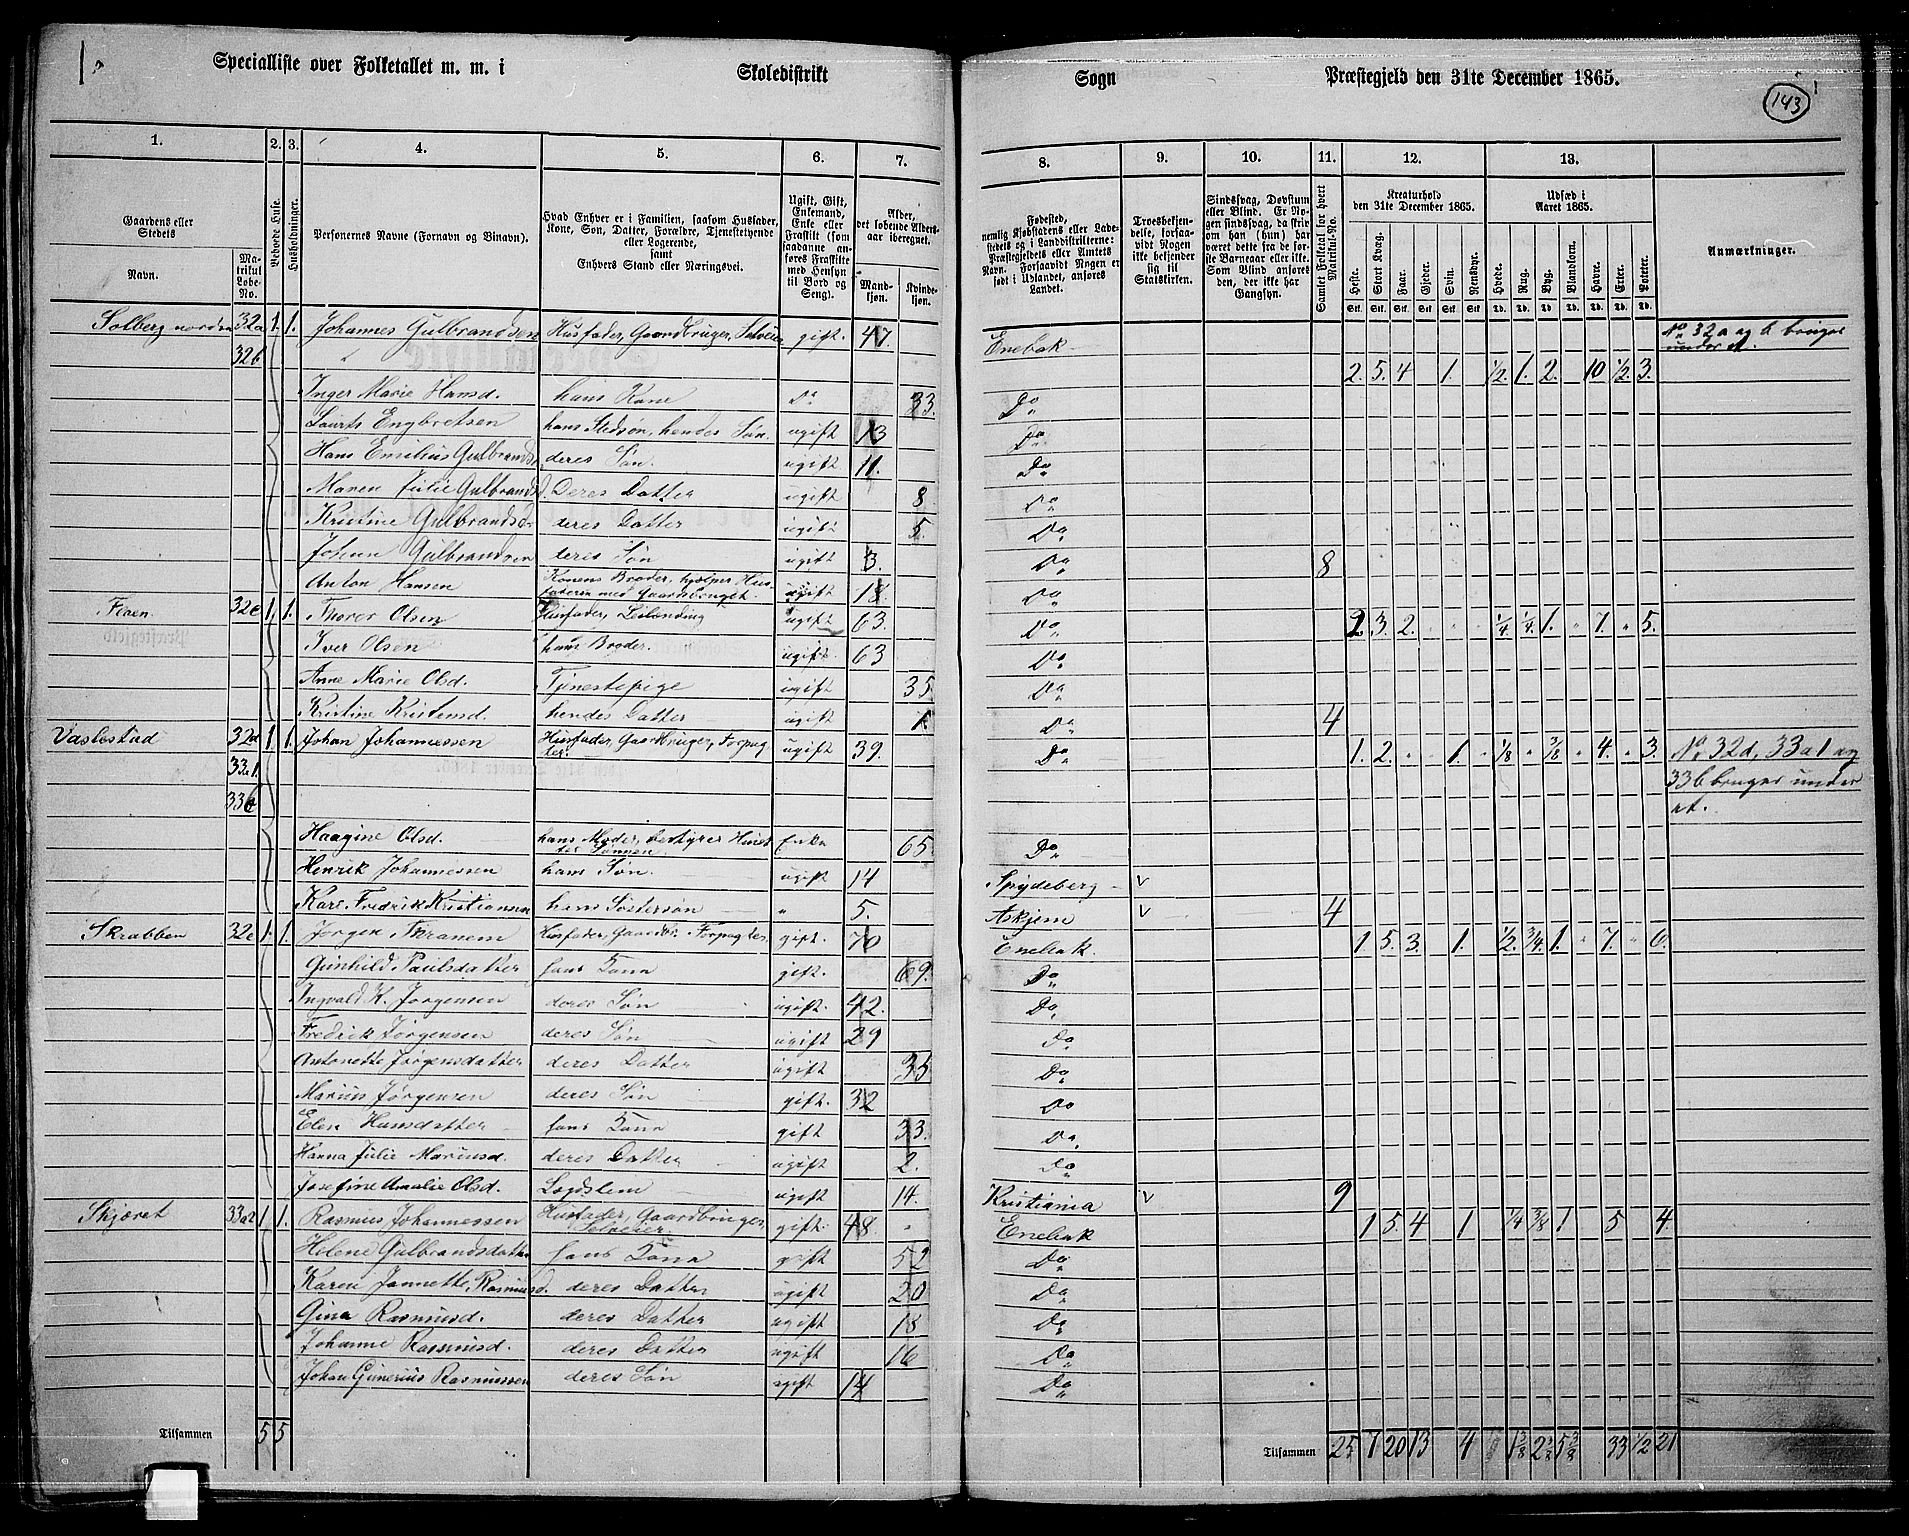 Specialliste over Folketallet m. m. i Skoledistrikt Sogn Præstegjeld den 31te December 1865.
143
1. 2. 3. 4. 5. 6. 7. 8. 9. 10. 11. 12. 13.
Gaardens eller Stedets
Navn.
Matrikul Løbe-No.
Beboede Huse.
Husholdninger.
Personernes Navne (Fornavn og Binavn).
Hvad Enhver er i Familien, saasom Husfader, Kone, Søn, Datter, Forældre, Tjenestetyende eller Logerende, samt Enhvers Stand eller Næringsvei.
Ugift, Gift, Enkemand, Enke eller Fraskilt (som saadanne anføres Fraskilte med Hensyn til Bord og Seng).
Alder, det løbende Alders-aar iberegnet.
Mandkjøn. Kvindekjøn.
Fødested, nemlig Kjøbstadens eller Ladestedets og i Landdistrikterne: Præstegjeldets eller Amtets Navn. Forsaavidt Nogen er født i Udlandet, anføres Landet.
Troesbekjendelse, forsaavidt Nogen ikke bekjender sig til Statskirken.
Sindssvag, Døvstum eller Blind. Er Nogen sindssvag, da skrives om han (hun) har været dette fra de første Barneaar eller ikke. Som Blind anføres den, der ikke har Gangsyn.
Samlet Folketal for hvert Matrikul-No.
Kreaturhold den 31te December 1865.
Heste. Stort Kvæg. Faar. Gjeder. Svin. Rensdyr.
Udsæd i Aaret 1865.
Hvede. Rug. Byg. Blandkorn. Havre. Erter. Poteter.
Anmærkninger.
Solberg nordre 32a 1. 1. Johannes Gulbrandsen Husfader, Gaardbruger, Selveier gift. 47 Enebak No 32a og b bruges under et.
32b 2. 5. 4 1. ½. 1. 2. 10 ½. 3.
Inger Marie Hansd. hans Kone Do 33. Do
Laurts Engbretsen hans Stedsøn, hendes Søn. ugift 13 Do
Hans Emilius Gulbrands. deres Søn. ugift 11. Do
Maren Julie Gulbrandsd. Deres Datter ugift 8 Do
Kristine Gulbrandsd. deres Datter ugift 5. Do
Johan Gulbrandsen deres Søn ugift 3. Do 8
Anton Hansen Konens Broder, hjælper Husfaderen med Gaardsbruget. ugift 18. Do
Flaen. 32c 1. 1. Thorer Olsen Husfader, Leilending ugift 63. Do 2. 3. 2. ¼. ¼. 1. 7. 5.
Iver Olsen hans Broder. ugift. 63 Do
Anne Marie Olsd. Tjenestepige ugift 35 Do
Kristine Kristensd. hendes Datter ugift 1. Do 4
32d 1 1. Johan Johannessen Husfader, Gaardbruger, Forpagter. ugift 39. Do 1. 2. 1. ⅛ ⅜ 4. 3. No 32d, 33a1 og
33b bruges under
et.
Haagine Olsd. hans Moder, bestyrer Huset for Sønnen. Enke 65. Do
Henrik Johannessen hans Søn. ugift 14 Spydeberg v
Karl Fredrik Kristiansen hans Søstersøn 5. Askjem v 4
Skrabben 32e 1. 1. Jørgen Thranem Husfader, Gaardbr. Forpagter. gift. 70 Enebak. 1 5. 3. 1. ½. ¾. 1. 7. 6.
Gunhild Paulsdatter hans Kona gift. 69. Do
Ingvald K. Jørgensen deres Søn ugift. 42. Do
Fredrik Jørgensen deres Søn ugift 29 Do
Antonette Jørgensdatter deres Datter ugift 35 Do
Marius Jørgensen deres Søn gift. 32 Do
Elen Hansdatter hans Kona gift 33. Do
Hanna Julie Mariusd. deres Datter ugift 2. Do
Josefine Amalie Olsd. Lægdslem ugift 14. Kristiania v 9
Skjæret 33a2 1 1. Rasmus Johannessen Husfader, Gaardbruger, Selveier gift. 48. Enebak 1 5 4 1 ¼ ⅜ 1 5 4.
Helene Gulbrandsdatter hans Kona gift 52 Do
Karen Jannette Rasmusd. deres Datter ugift 20 Do
Gina Rasmusd. deres Datter ugift 18 Do
Johanne Rasmusd. deres Datter ugift 16 Do
Johan Gunerius Rasmussen deres Søn ugift 14 Do
Tilsammen 5 5 Tilsammen 25 7 20 13 4 33 ½ 21